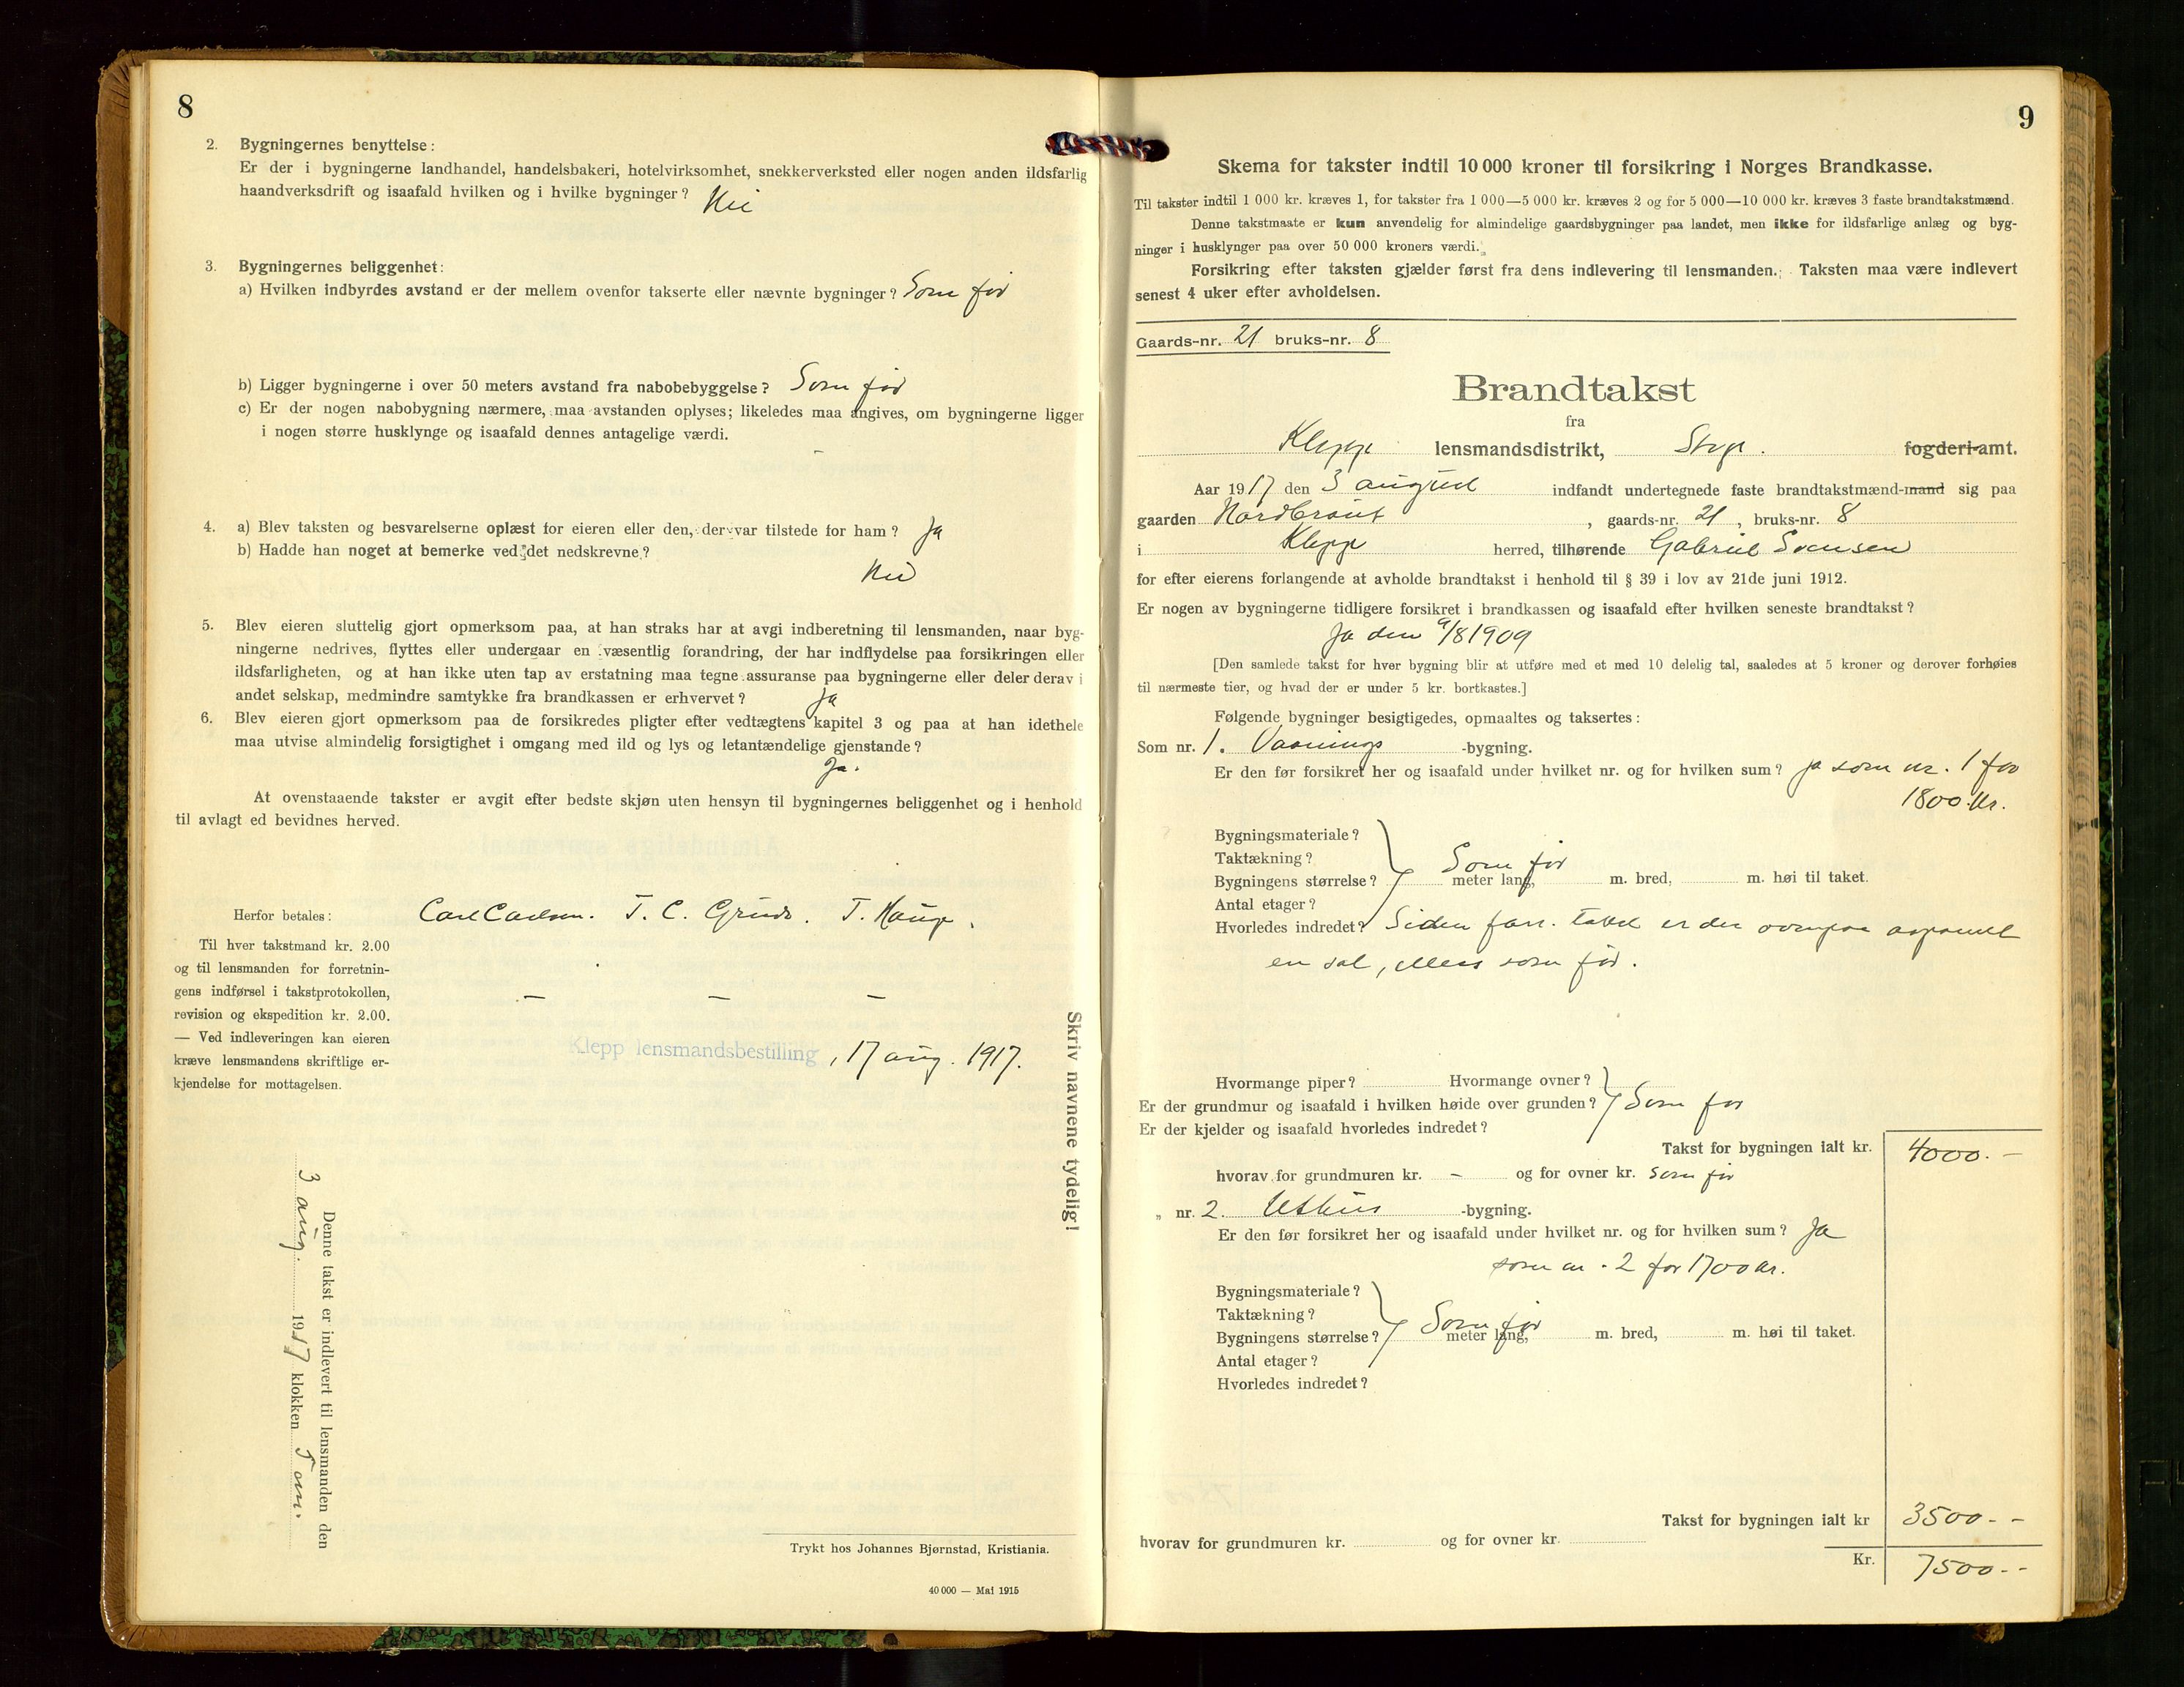 8
2. Bygningernes benyttelse:
Er der i bygningerne landhandel, handelsbakeri, hotelvirksomhet, snekkerverksted eller nogen anden ildsfarlig
haandverksdrift og isaafald hvilken og i hvilke bygninger? Nei
3. Bygningernes beliggenhet:
a) Hvilken indbyrdes avstand er der mellem ovenfor takserte eller nævnte bygninger? Som før
b) Ligger bygningerne i over 50 meters avstand fra nabobebyggelse? Som før
c) Er der nogen nabobygning nærmere, maa avstanden oplyses; likeledes maa angives, om bygningerne ligger
i nogen større husklynge og isaafald dennes antagelige værdi.
-
4. a) Blev taksten og besvarelserne oplæst for eieren eller den, der var tilstede for ham? Ja
b) Hadde han noget at bemerke ved det nedskrevne?
Nei
5. Blev eieren sluttelig gjort opmerksom paa, at han straks har at avgi indberetning til lensmanden, naar byg-
ningerne nedrives, flyttes eller undergaar en væsentlig forandring, der har indflydelse paa forsikringen eller
ildsfarligheten, og at han ikke uten tap av erstatning maa tegne assuranse paa bygningerne eller deler derav i
andet selskap, medmindre samtykke fra brandkassen er erhvervet? Ja
6. Blev eieren gjort opmerksom paa de forsikredes pligter efter vedtægtens kapitel 3 og paa at han idethele
maa utvise almindelig forsigtighet i omgang med ild og lys og letantændelige gjenstande?
Ja.
At ovenstaaende takster er avgit efter bedste skjøn uten hensyn til bygningernes beliggenhet og i henhold
til avlagt ed bevidnes herved.
Herfor betales: Carl Carlsen. T. C. Grude. T. Hauge.
Til hver takstmand kr. 2.00
og til lensmanden for forretnin-
gens indførsel i takstprotokollen,
revision og ekspedition kr. 2.00.
— Ved indleveringen kan eieren
kræve lensmandens skriftlige er-
kjendelse for mottagelsen.
— — —
Klepp lensmandsbestilling, 17 aug. 1917.
Skriv navnene tydelig!
Denne takst er indlevert til lensmanden den
3 aug. 1917 klokken
Trykt hos Johannes Bjørnstad, Kristiania.
40 000 — Mai 1915
9
Skema for takster indtil 10 000 kroner til forsikring i Norges Brandkasse.
Til takster indtil 1 000 kr. kræves 1, for takster fra 1 000—5 000 kr. kræves 2 og for 5 000—10 000 kr. kræves 3 faste brandtakstmænd.
Denne takstmaate er kun anvendelig for almindelige gaardsbygninger paa landet, men ikke for ildsfarlige anlæg og byg-
ninger i husklynger paa over 50 000 kroners værdi.
Forsikring efter taksten gjælder først fra dens indlevering til lensmanden. Taksten maa være indlevert
senest 4 uker efter avholdelsen.
Gaards-nr. 21 bruks-nr. 8
Brandtakst
fra
Klepp lensmandsdistrikt, Stvgr. fogderi-amt.
Aar 1917 den 3 august indfandt undertegnede faste brandtakstmænd-mand sig paa
gaarden Nordbraut, gaards-nr. 21, bruks-nr. 8
i Klepp herred, tilhørende Gabriel Svensen
for efter eierens forlangende at avholde brandtakst i henhold til § 39 i lov av 21de juni 1912.
Er nogen av bygningerne tidligere forsikret i brandkassen og isaafald efter hvilken seneste brandtakst?
Ja den 9/8 1909
[Den samlede takst for hver bygning blir at utføre med et med 10 delelig tal, saaledes at 5 kroner og derover forhøies
til nærmeste tier, og hvad der er under 5 kr. bortkastes.]
Følgende bygninger besigtigedes, opmaaltes og taksertes:
Som nr. 1. Vaanings -bygning.
Er den før forsikret her og isaafald under hvilket nr. og for hvilken sum? Ja som nr. 1 for
1800 kr.
Bygningsmateriale?
Taktækning?
Bygningens størrelse? Som før meter lang, m. bred, m. høi til taket.
Antal etager?
Hvorledes indredet? Siden forr. takst er der ovenpaa avpanelt
en sal, ellers som før.
Hvormange piper? Hvormange ovner?
Er der grundmur og isaafald i hvilken høide over grunden? Som før
Er der kjelder og isaafald hvorledes indredet?
Takst for bygningen ialt kr. 4000.-
hvorav for grundmuren kr. - og for ovner kr. som før
„ nr. 2. Uthus -bygning.
Er den før forsikret her og isaafald under hvilket nr. og for hvilken sum? Ja
som nr. 2 for 1700 kr.
Bygningsmateriale?
Taktækning?
Bygningens størrelse? Som før meter lang, m. bred, m. høi til taket.
Antal etager?
Hvorledes indredet?
Takst for bygningen ialt kr 3500.-
hvorav for grundmuren kr. og for ovner kr.
Kr. 7500.-